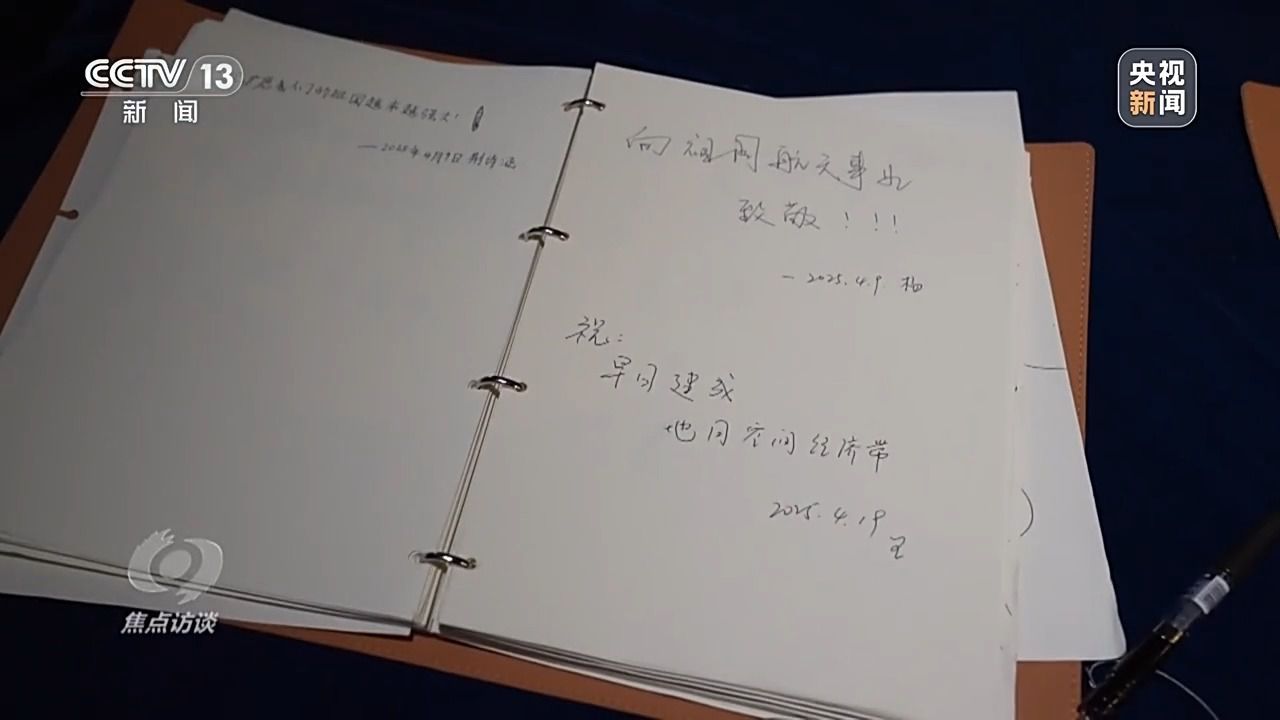 CCTV 13
新闻
央视
新闻
祖国越来越强大!
—2025年4月9日
向祖国航天事业
致敬!!!
— 2025.4.9 杨
祝:
早日建成
地月空间经济带
2025.4.19
王
焦点访谈